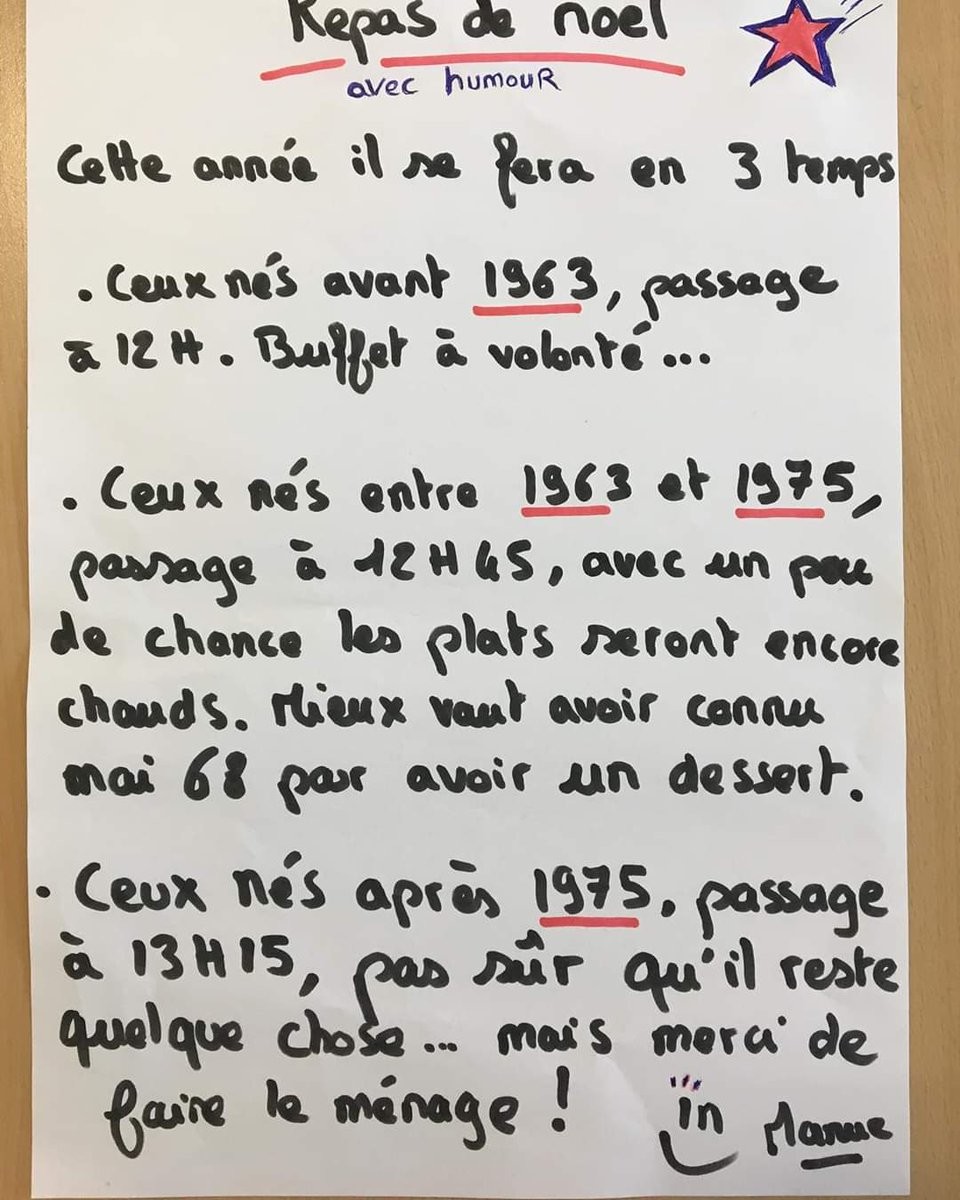 Repas de noel
avec humouR
Cette année il se fera en 3 temps
. Ceux nés avant 1963, passage
à 12H. Buffet à volonté...
. Ceux nés entre 1963 et 1975,
passage à 12H45, avec un peu
de chance les plats seront encore
chauds. Mieux vaut avoir connu
mai 68 pour avoir un dessert.
. Ceux nés après 1975, passage
à 13H15, pas sûr qu'il reste
quelque chose... mais merci de
faire le ménage !
in